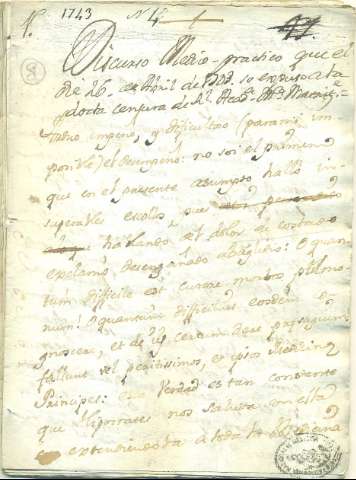 1743 N 4
Discurso Medico-practico que el
dia 26. de Abril de se expuso a la
docta censura de la Rl. Acad. Md. Matrit.
y dificultad (para mi im
posible) el desengaño: no soi el primero
que en el presente asumpto hallo in
superables escollos, pues
que hablando del dolor de costado
exclamò desengañado Ballivio: O quan
tum difficile est curare morbos pulmo
num! O quantum difficilius eosdem cog
noscere, et de iis certum dare praesagium
fallunt vel peritissimos, et ipsos Medicinae
Principes: esta Verdad es tan constante
que Hipocrates nos saluda con ella
extendiendola a toda la Medicina